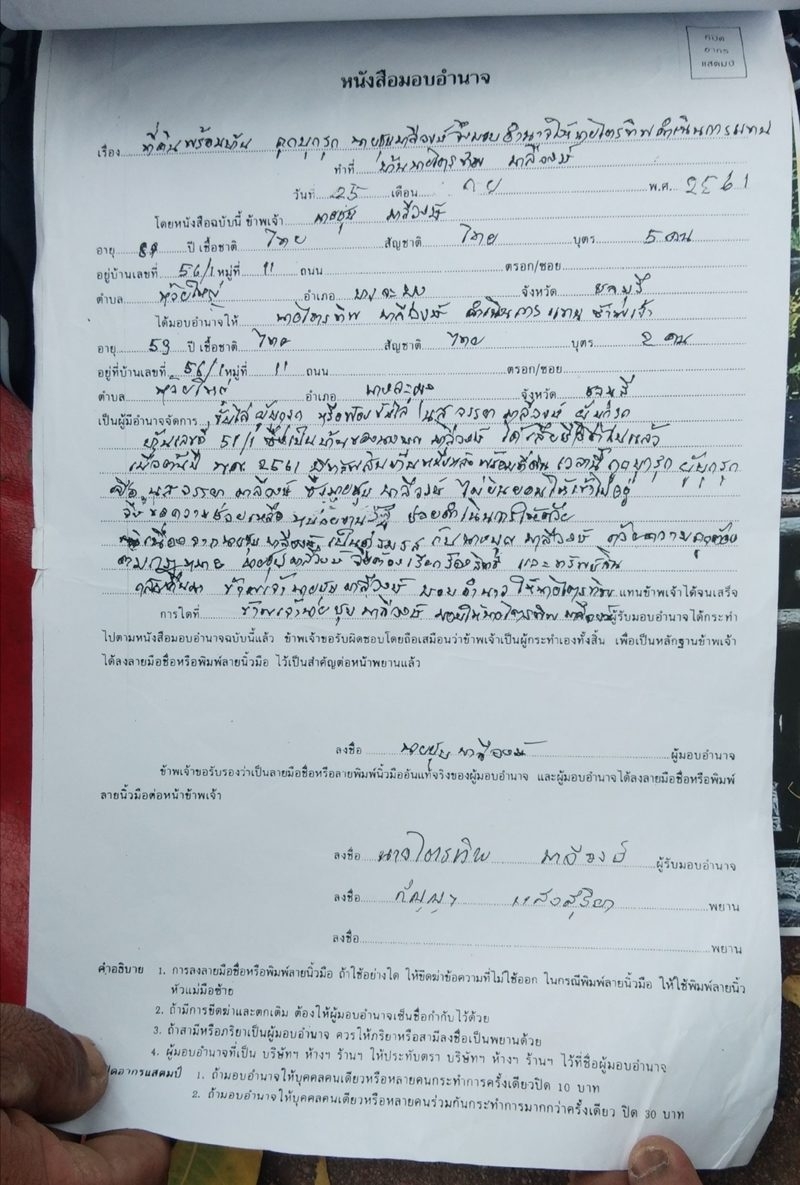 ที่ปิด
อากร
แสตมป์
หนังสือมอบอำนาจ
เรื่อง ที่ดินพร้อมบ้าน ถูกบุกรุก นายชุบ มาลีวงษ์ จึงมอบอำนาจให้นายไตรทิพ ดำเนินการแทน
ทำที่ บ้านนายไตรทิพ มาลีวงษ์
วันที่ 25 เดือน กย พ.ศ. 2561
โดยหนังสือฉบับนี้ ข้าพเจ้า นายชุบ มาลีวงษ์
อายุ ปี เชื้อชาติ ไทย สัญชาติ ไทย บุตร 5 คน
อยู่บ้านเลขที่ 56/1 หมู่ที่ 11 ถนน ตรอก/ซอย
ตำบล ห้วยใหญ่ อำเภอ บางละมุง จังหวัด ชลบุรี
ได้มอบอำนาจให้ นายไตรทิพ มาลีวงษ์ ดำเนินการ แทน ข้าพเจ้า
อายุ 59 ปี เชื้อชาติ ไทย สัญชาติ ไทย บุตร 2 คน
อยู่ที่บ้านเลขที่ 56/1 หมู่ที่ 11 ถนน ตรอก/ซอย
ตำบล ห้วยใหญ่ อำเภอ บางละมุง จังหวัด ชลบุรี
เป็นผู้มีอำนาจจัดการ ขับไล่ ผู้บุกรุก หรือฟ้องขับไล่ นส จรรยา มาลีวงษ์ ผู้บุกรุก
บ้านเลขที่ 51/1 ซึ่งเป็นบ้านของ มาลีวงษ์ ได้เสียชีวิตไปแล้ว
เมื่อต้นปี พศ 2561 พร้อมที่ดิน เวลานี้ ถูกบุกรุก ผู้บุกรุก
คือ นส จรรยา มาลีวงษ์ ซึ่งนายชุบ มาลีวงษ์ ไม่ยินยอมให้เข้าไปอยู่
จึงขอความช่วยเหลือ ช่วยดำเนินการให้ด้วย
เนื่องจากนายชุบ มาลีวงษ์ เป็นคู่สมรส กับ มาลีวงษ์ ด้วยความถูกต้อง
ตามกฎหมาย นายชุบ มาลีวงษ์ จึงต้องเรียกร้องสิทธิ์ และทรัพย์สิน
กลับคืนมา ข้าพเจ้านายชุบ มาลีวงษ์ มอบอำนาจ ให้นายไตรทิพ แทนข้าพเจ้าได้จนเสร็จ
การใดที่ ข้าพเจ้านายชุบ มาลีวงษ์ มอบให้นายไตรทิพ มาลีวงษ์ ผู้รับมอบอำนาจได้กระทำ
ไปตามหนังสือมอบอำนาจฉบับนี้แล้ว ข้าพเจ้าขอรับผิดชอบโดยถือเสมือนว่าข้าพเจ้าเป็นผู้กระทำเองทั้งสิ้น เพื่อเป็นหลักฐานข้าพเจ้า
ได้ลงลายมือชื่อหรือพิมพ์ลายนิ้วมือ ไว้เป็นสำคัญต่อหน้าพยานแล้ว
ลงชื่อ นายชุบ มาลีวงษ์ ผู้มอบอำนาจ
ข้าพเจ้าขอรับรองว่าเป็นลายมือชื่อหรือลายพิมพ์นิ้วมืออันแท้จริงของผู้มอบอำนาจ และผู้มอบอำนาจได้ลงลายมือชื่อหรือพิมพ์
ลายนิ้วมือต่อหน้าข้าพเจ้า
ลงชื่อ นายไตรทิพ มาลีวงษ์ ผู้รับมอบอำนาจ
ลงชื่อ กัญญา แสงสุริยา พยาน
ลงชื่อ พยาน
คำอธิบาย 1. การลงลายมือชื่อหรือพิมพ์ลายนิ้วมือ ถ้าใช้อย่างใด ให้ขีดฆ่าข้อความที่ไม่ใช้ออก ในกรณีพิมพ์ลายนิ้วมือ ให้ใช้พิมพ์ลายนิ้ว
หัวแม่มือซ้าย
2. ถ้ามีการขีดฆ่าและตกเติม ต้องให้ผู้มอบอำนาจเซ็นชื่อกำกับไว้ด้วย
3. ถ้าสามีหรือภริยาเป็นผู้มอบอำนาจ ควรให้ภริยาหรือสามีลงชื่อเป็นพยานด้วย
4. ผู้มอบอำนาจที่เป็น บริษัทฯ ห้างฯ ร้านฯ ให้ประทับตรา บริษัทฯ ห้างฯ ร้านฯ ไว้ที่ชื่อผู้มอบอำนาจ
ปิดอากรแสตมป์ 1. ถ้ามอบอำนาจให้บุคคลคนเดียวหรือหลายคนกระทำการครั้งเดียวปิด 10 บาท
2. ถ้ามอบอำนาจให้บุคคลคนเดียวหรือหลายคนร่วมกันกระทำการมากกว่าครั้งเดียว ปิด 30 บาท